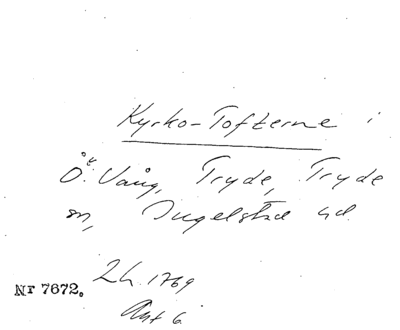 Kyrko-Tofterne i
Ö: Vång, Tryde, Tryde
sn, Ingelstad hd.
Lh. 1769
Nr 7672.
Akt 6